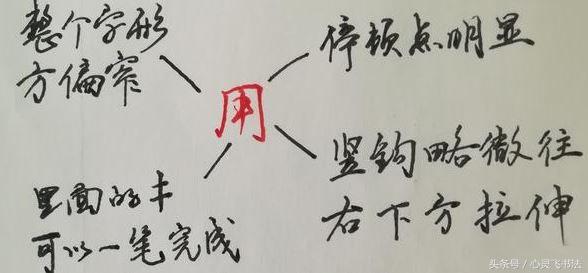 整个字形
方偏窄
停顿点明显
用
里面的丰
可以一笔完成
竖钩略微往
右下方拉伸
头条号 / 心灵飞书法